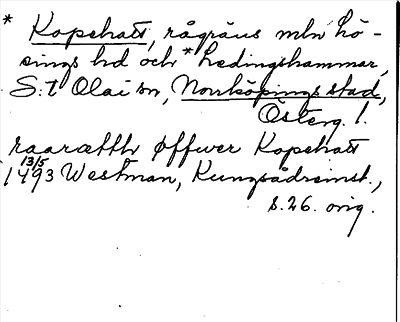 * Kopehatt, rågräns mln Lö-
sings hd och * Ledingshammar,
S:t Olai sn, Norrköpings stad,
Österg. l.
raarætth offwer Kopehatt
13/5
1493 Westman, Kungsådreinst.,
s. 26. orig.